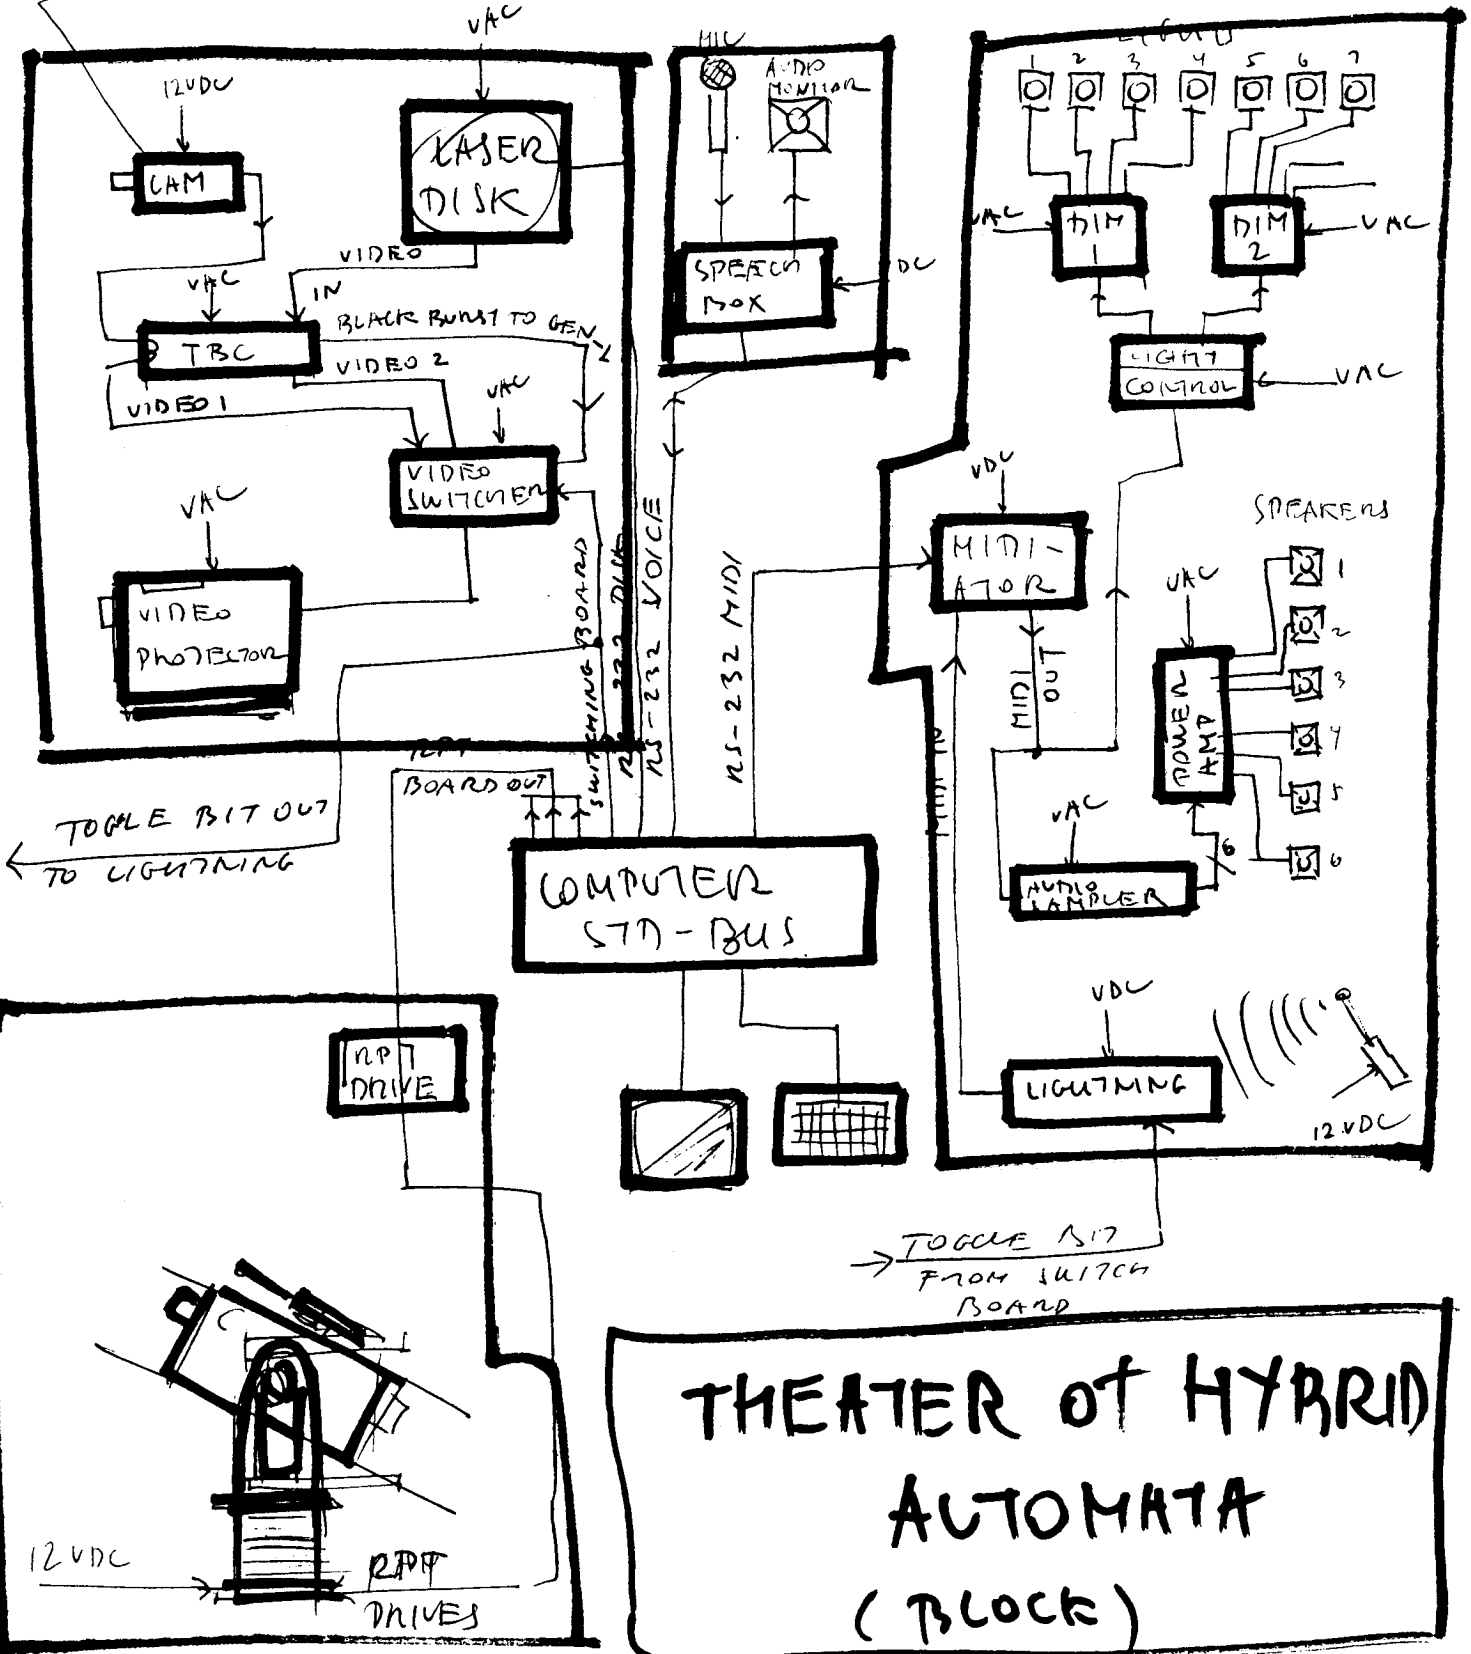 VAC
12VDC
CAM
LASER
DISK
VIDEO
IN
VAC
TBC
BLACK BURST TO GEN-L
VIDEO 2
VIDEO 1
VAC
VIDEO
SWITCHER
VAC
VIDEO
PROJECTOR
MIC
AUDIO
MONITOR
SPEECH
BOX
DC
LIGHTS
1 2 3 4 5 6 7
VAC
DIM
1
DIM
2
VAC
LIGHT
CONTROL
VAC
VDC
MIDI-
ATOR
MIDI
OUT
MIDI IN
SPEAKERS
1
2
3
4
5
6
VAC
POWER
AMP
6
VAC
AUDIO
SAMPLER
VDC
LIGHTNING
12VDC
SWITCHING BOARD
RS-232 DISK
RS-232 VOICE
RS-232 MIDI
RPT
BOARD OUT
TOGGLE BIT OUT
TO LIGHTNING
COMPUTER
STD-BUS
RPT
DRIVE
TOGGLE BIT
FROM SWITCH
BOARD
12VDC
RPT
DRIVES
THEATER OF HYBRID
AUTOMATA
(BLOCK)